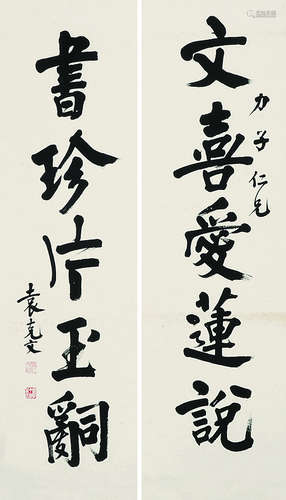 文喜愛蓮說
力子仁兄
書珍片玉𤔲
袁克文